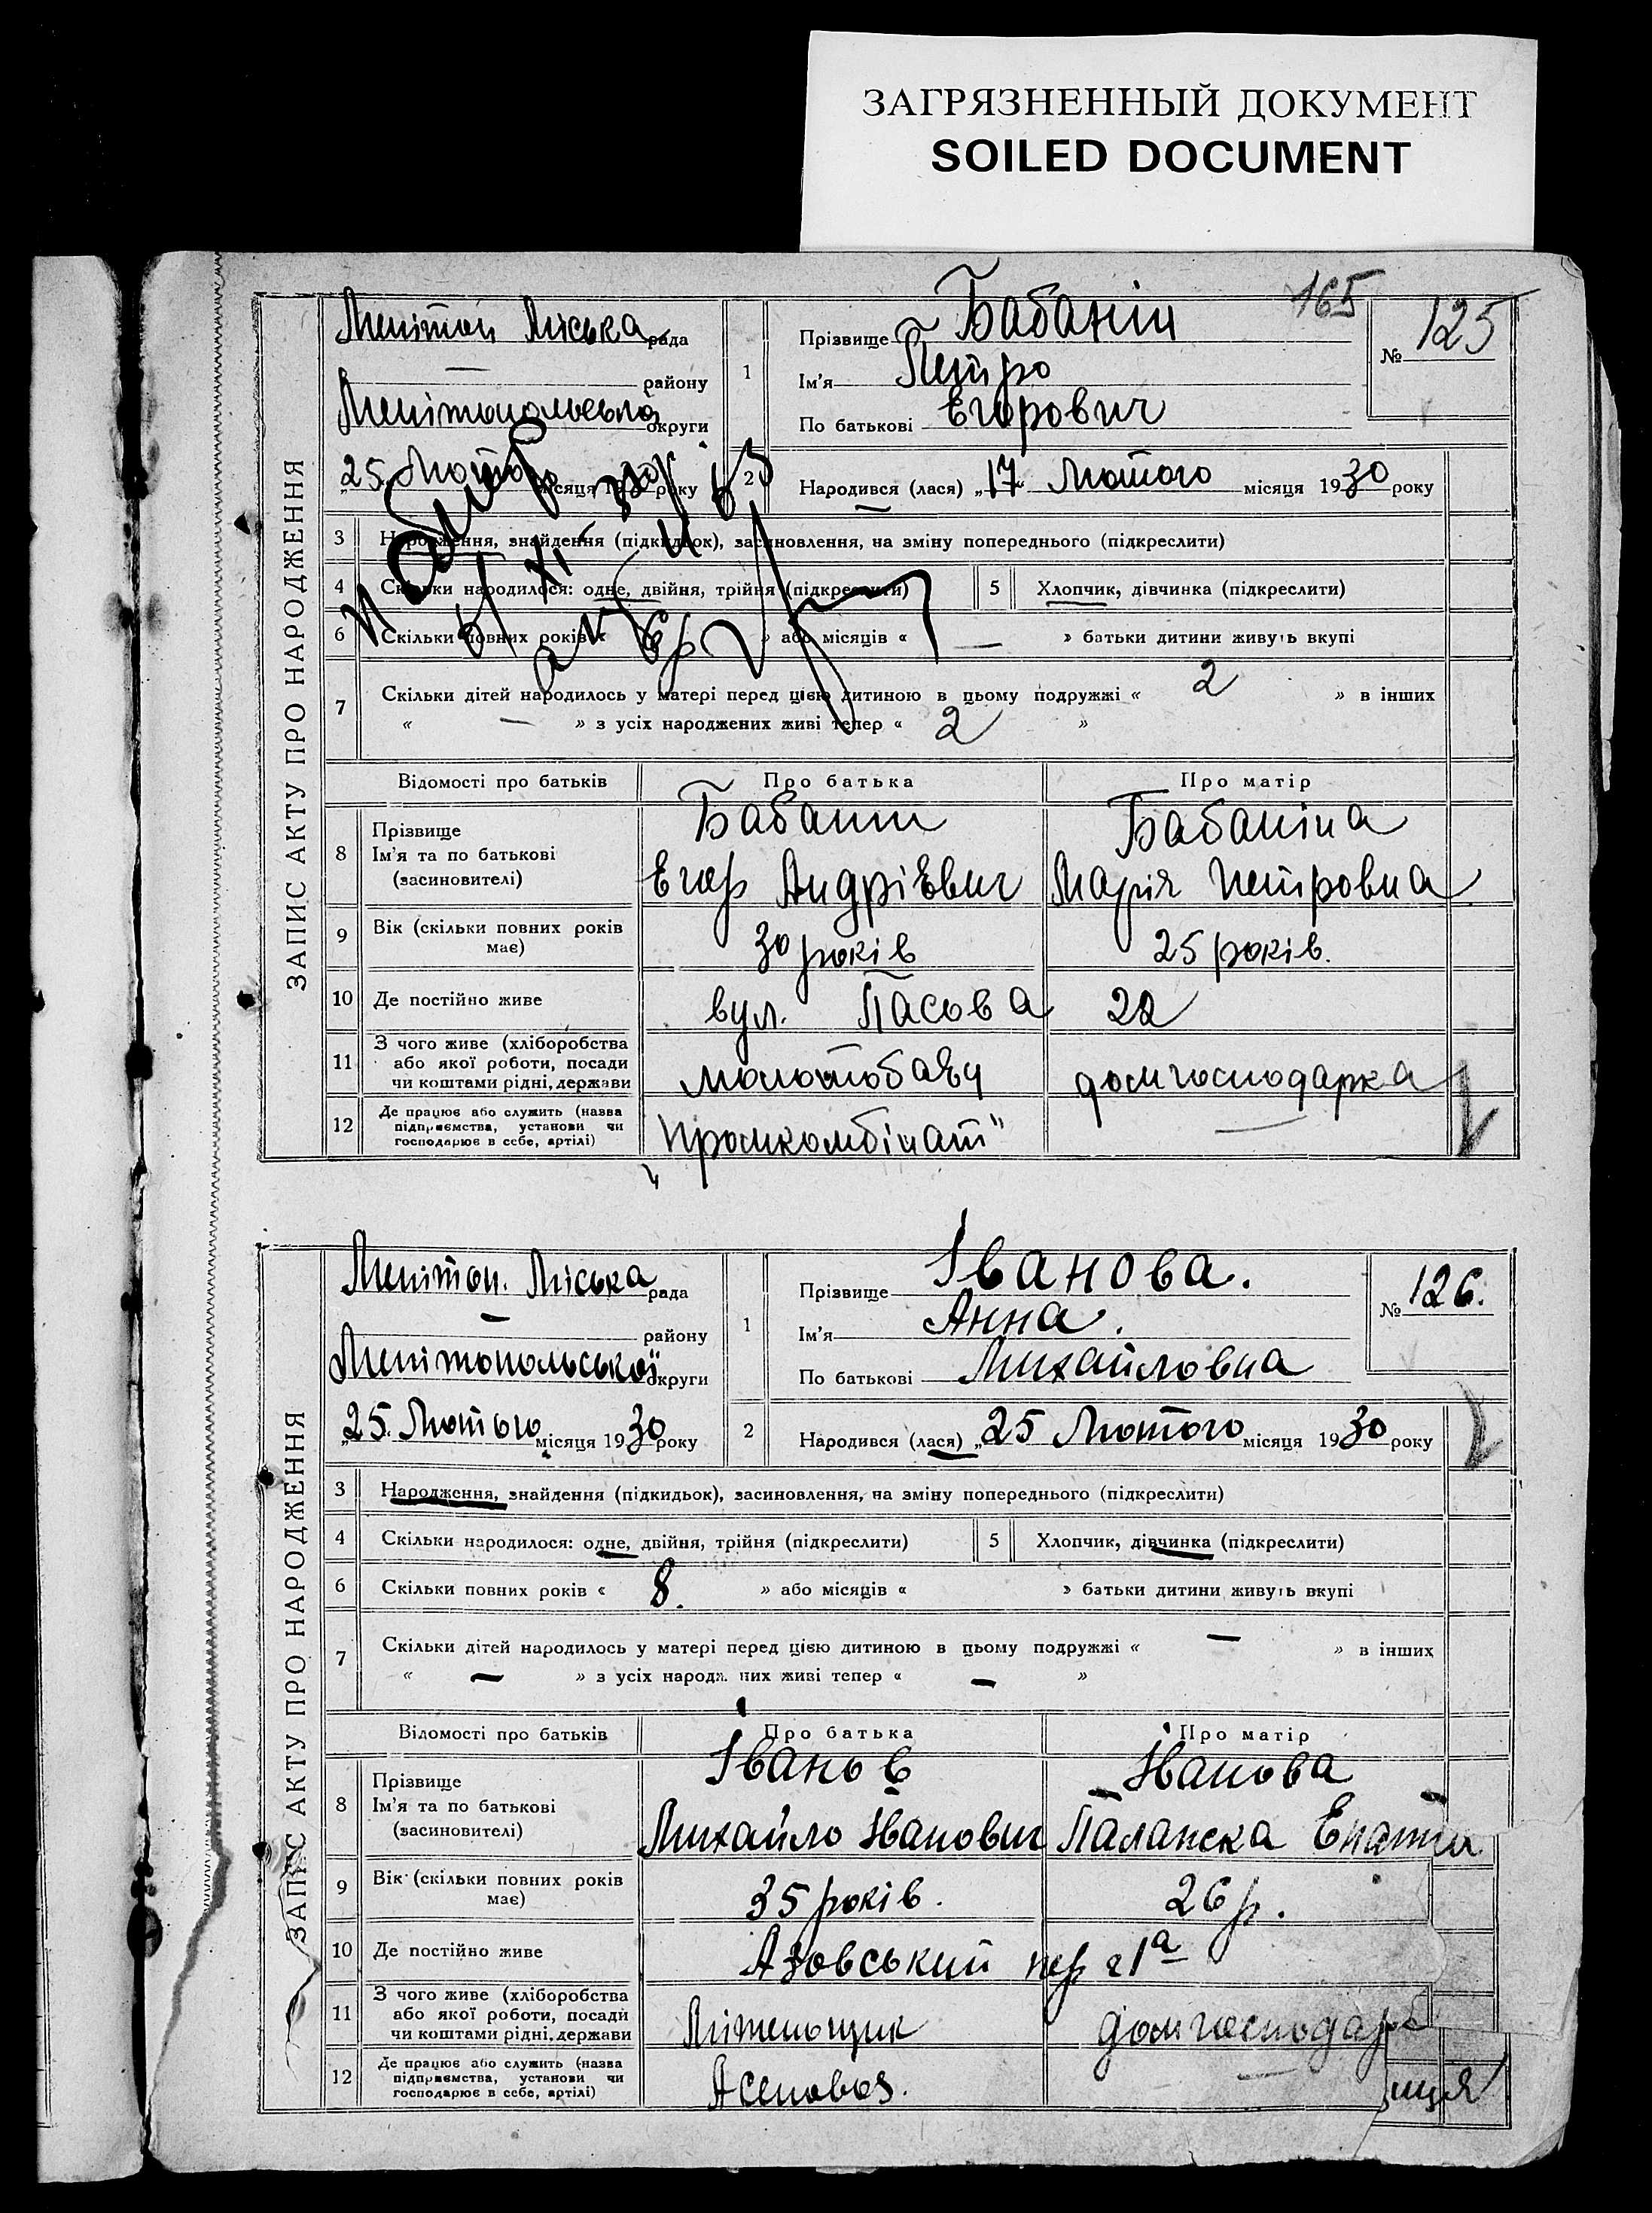 ЗАГРЯЗНЕННЫЙ ДОКУМЕНТ
SOILED DOCUMENT
165
ЗАПИС АКТУ ПРО НАРОДЖЕННЯ
Меліт. Міська рада
— району
Мелітопольська округи
25 Лютого місяця 1930 року
1 Прізвище Бабанін
Ім'я Петро
По батькові Егорович
№ 125
2 Народився (лася) „17" Лютого місяця 1930 року
3 Народження, знайдення (підкидьок), засиновлення, на зміну попереднього (підкреслити)
4 Скільки народилося: одне, двійня, трійня (підкреслити) 5 Хлопчик, дівчинка (підкреслити)
6 Скільки повних років « 6 р » або місяців « — » батьки дитини живуть вкупі
7 Скільки дітей народилось у матері перед цією дитиною в цьому подружжі « 2 » в інших
« — » з усіх народжених живі тепер « 2 »
Відомості про батьків Про батька Про матір
8 Прізвище Ім'я та по батькові (засиновителі)
Бабанин Бабаніна
Егор Андріевич Марія Петровна
9 Вік (скільки повних років має) 30 років 25 років.
10 Де постійно живе вул. Пасова 22
11 З чого живе (хліборобства або якої роботи, посади чи коштами рідні, держави молотобаєц домгосподарка
12 Де працює або служить (назва підприємства, установи чи господарює в себе, артілі) „Промкомбінат" —
ЗАПИС АКТУ ПРО НАРОДЖЕННЯ
Мелітоп. Міська рада
— району
Мелітопольської округи
„25. Лютого місяця 1930 року
1 Прізвище Іванова.
Ім'я Анна.
По батькові Михайловна
№ 126.
2 Народився (лася) „25 Лютого місяця 1930 року
3 Народження, знайдення (підкидьок), засиновлення, на зміну попереднього (підкреслити)
4 Скільки народилося: одне, двійня, трійня (підкреслити) 5 Хлопчик, дівчинка (підкреслити)
6 Скільки повних років « 8. » або місяців « » батьки дитини живуть вкупі
7 Скільки дітей народилось у матері перед цією дитиною в цьому подружжі « — » в інших
« — » з усіх народж. них живі тепер « — »
Відомості про батьків Про батька Про матір
8 Прізвище Ім'я та по батькові (засиновителі)
Іванов Іванова
Михайло Іванович Палажка
9 Вік (скільки повних років має) 35 років. 26 р.
10 Де постійно живе Азовський пер 21а
11 З чого живе (хліборобства або якої роботи, посади чи коштами рідні, держави домгосподар
12 Де працює або служить (назва підприємства, установи чи господарює в себе, артілі) —